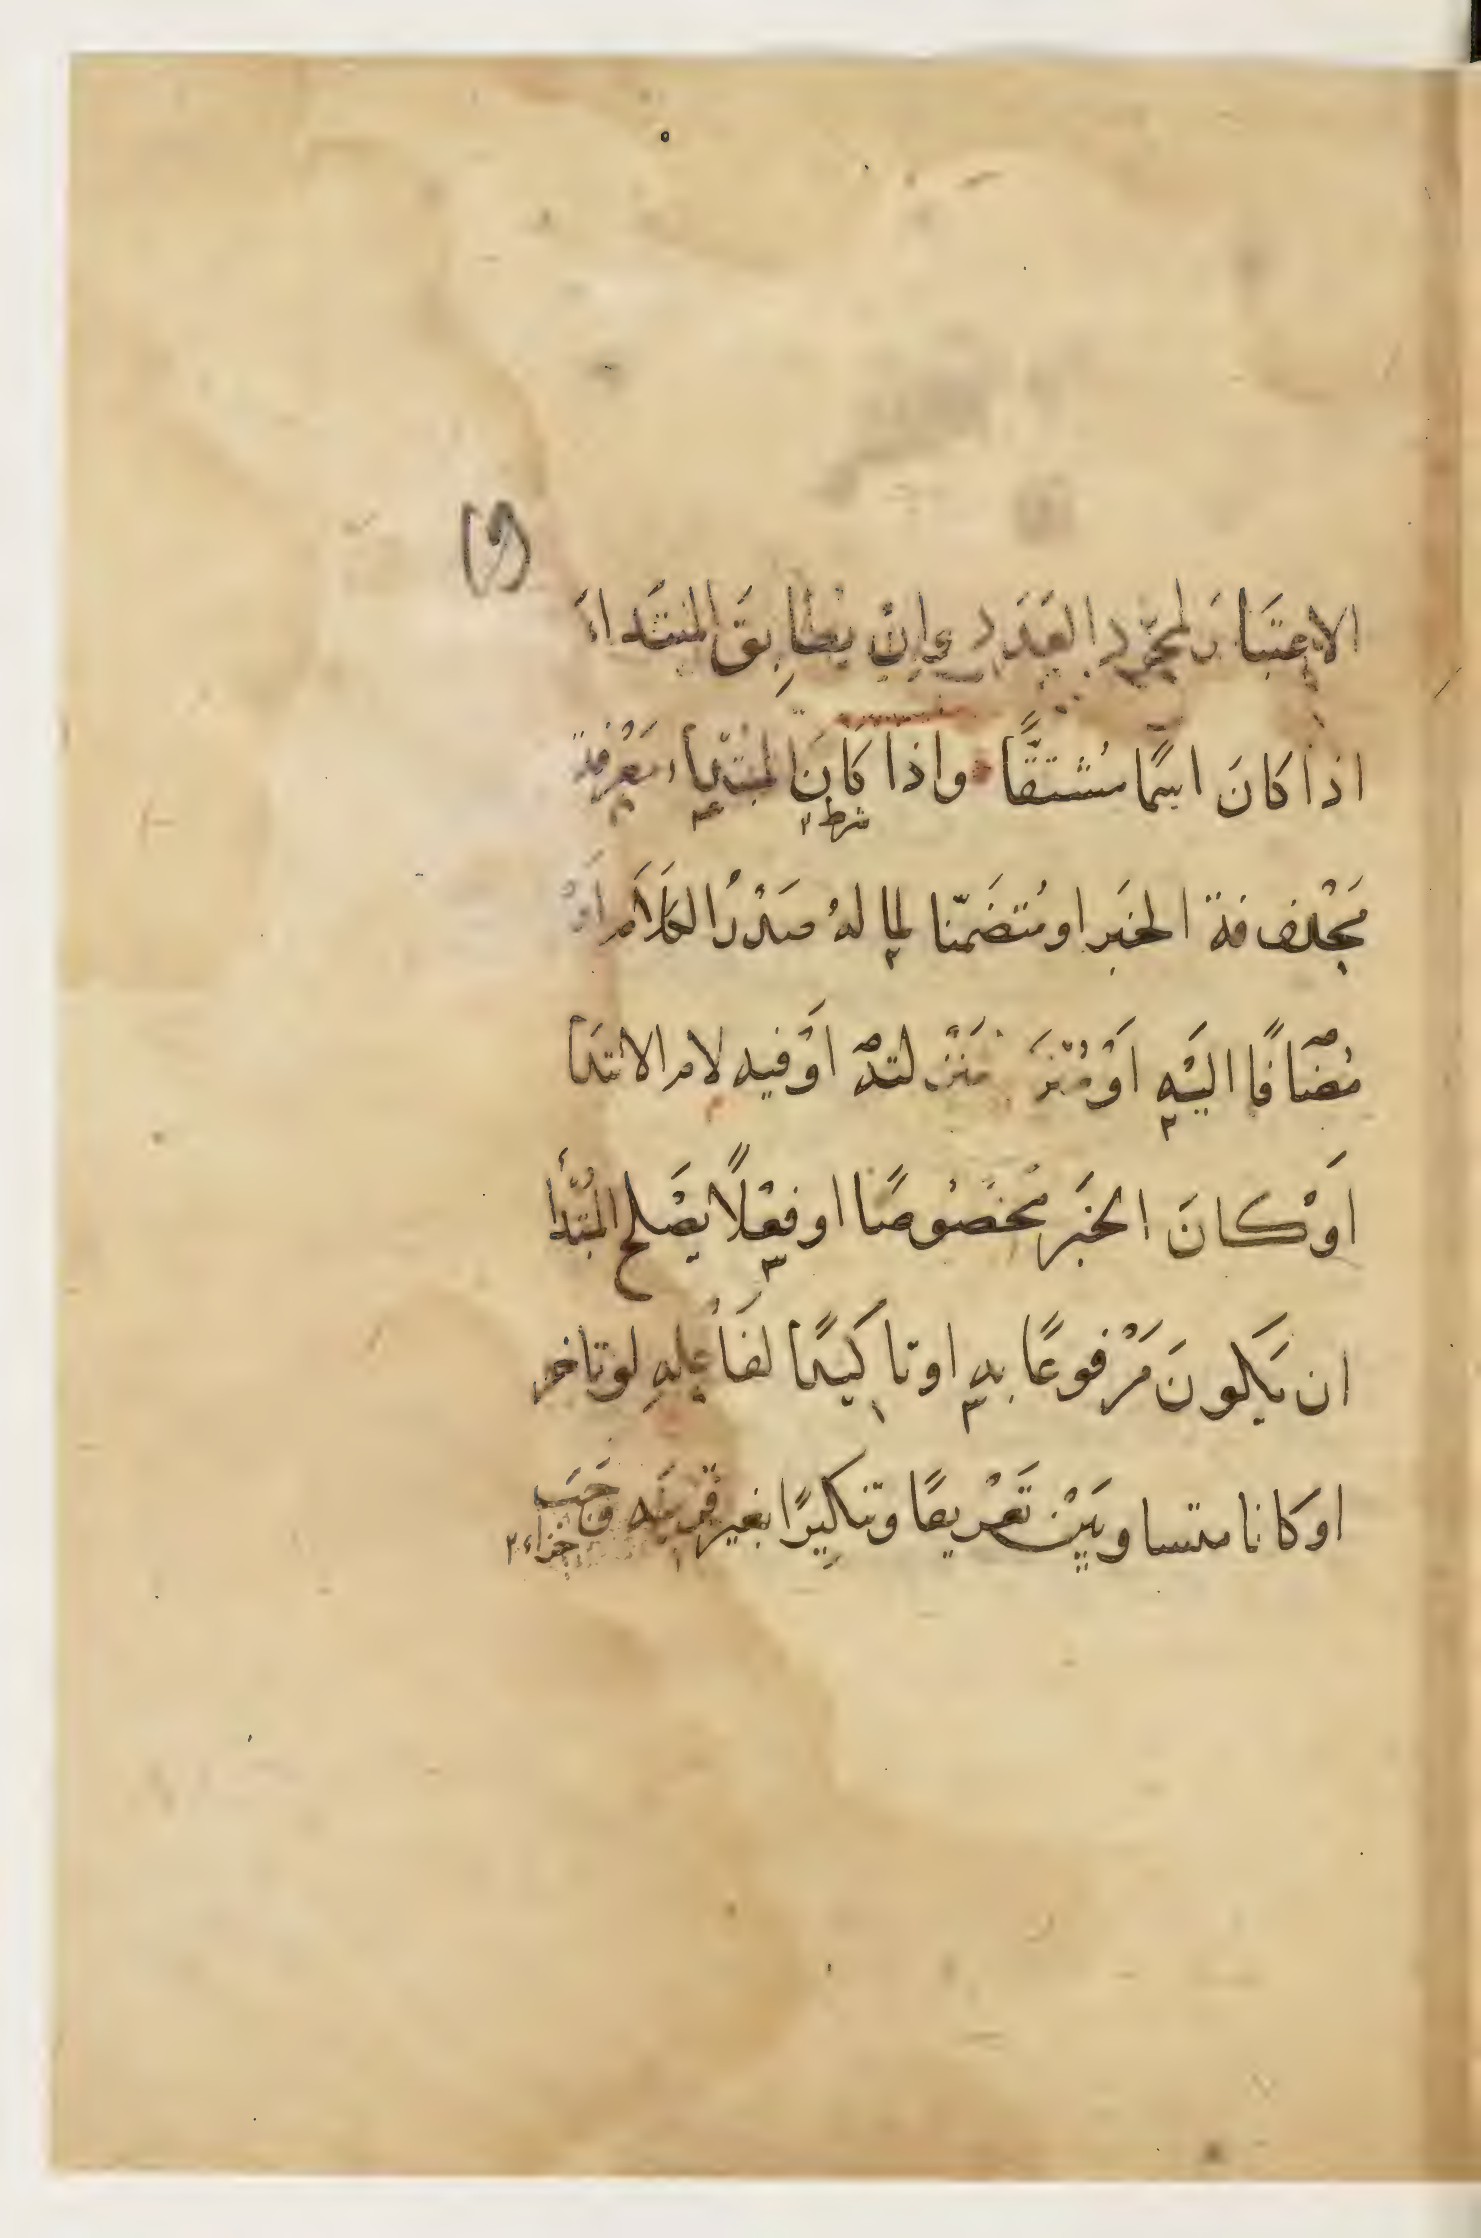 (٩)
الاعتبار لمجرّد العَدَدِ وان يُطابِقَ المبتَداءَ
اذا كَانَ اسمًا مُشتقًّا واذا كَانَ المُبتداء مَعْرِفة
شرط ٢
الخبَر او مُتضَمّنا لما لهُ صَدْرُ الكَلَامِ اَوْ
مُضَافًا اليَهِ اَوْ اَوْفيه لام الابتدَا
اَوْكانَ الخبَر مخصُوصًا او فِعْلًا يَصْلح المُبتدأ
ان يَكونَ مَرْفوعًا بهِ او تاكيدًا لفَاعِلِهِ لو تاخر
او كانا متساويَيْن تَعْريفًا وتنكِيرًا بغير قرينَه وَجَبَ
جزاء ٢